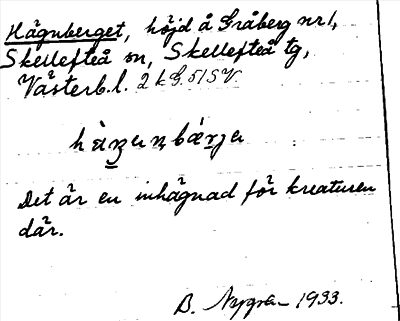 Hägnberget, höjd å Gråberg nr 1,
Skellefteå sn, Skellefteå tg,
Västerb. l. 2 k G. 5/SV
Det är en inhägnad för kreaturen
där.
B. Nygren 1933.